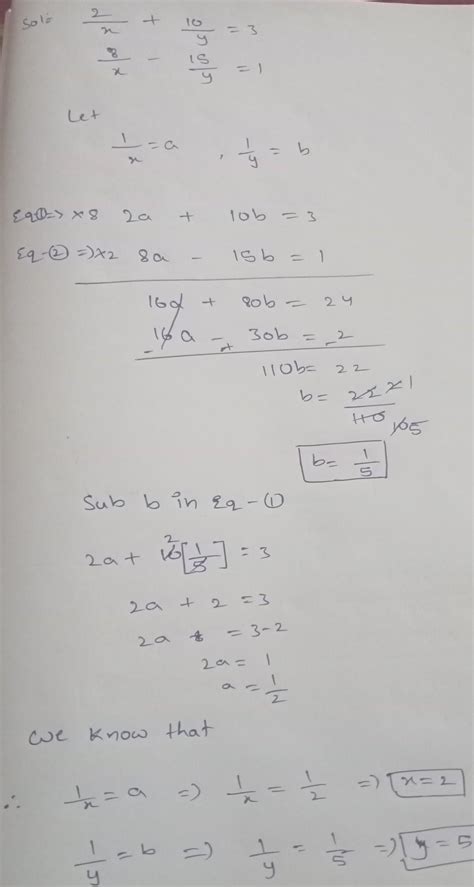 Sol:- 2/x + 10/y = 3
8/x - 15/y = 1
Let
1/x = a , 1/y = b
Eq① => ×8 2a + 10b = 3
Eq-② =>×2 8a - 15b = 1
16a + 80b = 24
16a - 30b = 2
- + -
110b = 22
b = 22 2 1 / 110 10 5
b = 1/5
Sub b in Eq-①
2a + 10 2 [1/5] = 3
2a + 2 = 3
2a = 3-2
2a = 1
a = 1/2
We know that
∴ 1/x = a => 1/x = 1/2 => x=2
1/y = b => 1/y = 1/5 => y=5